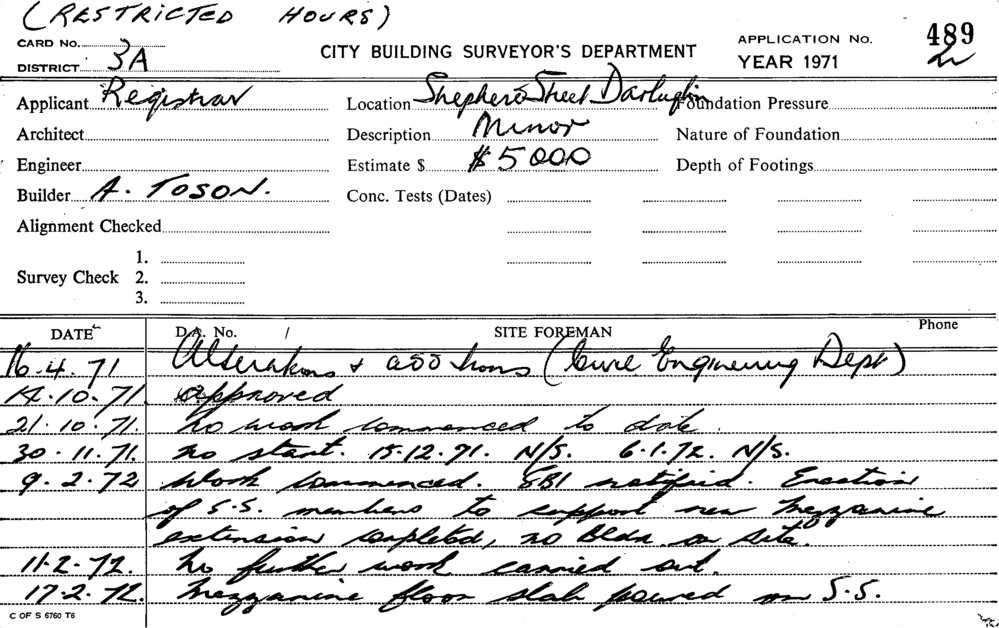 (RESTRICTED HOURS)
CARD No.
DISTRICT 3A
CITY BUILDING SURVEYOR'S DEPARTMENT
APPLICATION No. 489
YEAR 1971
Applicant Registrar
Location Shepherd Street Darlington
Foundation Pressure
Architect
Description Minor
Nature of Foundation
Engineer
Estimate $ $5000
Depth of Footings
Builder A. TOSON.
Conc. Tests (Dates)
Alignment Checked
Survey Check
1.
2.
3.
DATE D.A. No. / SITE FOREMAN Phone
16.4.71 Alterations + additions (Civil Engineering Dept)
14.10.71 approved
21.10.71. no work commenced to date.
30.11.71. no start. 15.12.71. N/S. 6.1.72. N/S.
9.2.72 Work commenced. SBI notified. Erection
of S.S. members to support new mezzanine
extension completed, no Bldr on site.
11.2.72. No further work carried out.
17.2.72. Mezzanine floor slab poured on S.S.
C OF S 6760 T6